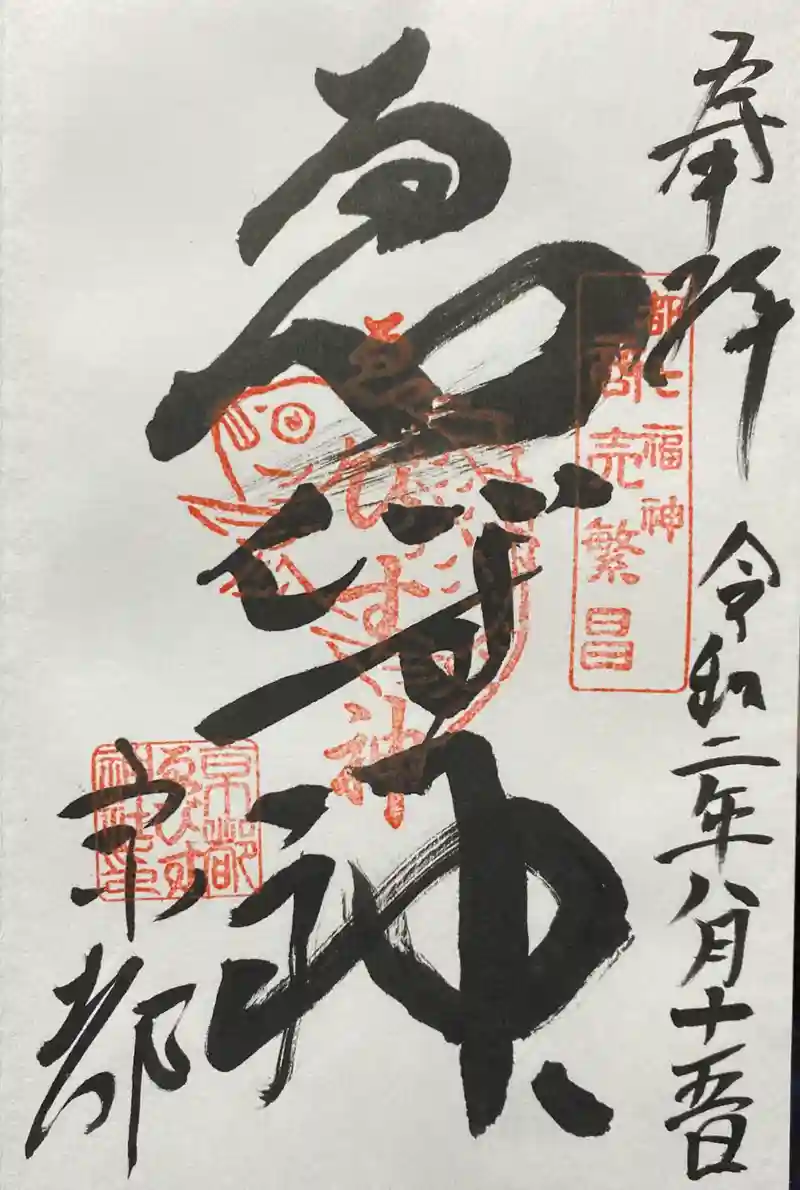 奉拝
令和二年八月十五日
都七福神
商売繁昌
ゑびす神
ゑびす神
京都
京都
ゑびす
神社印